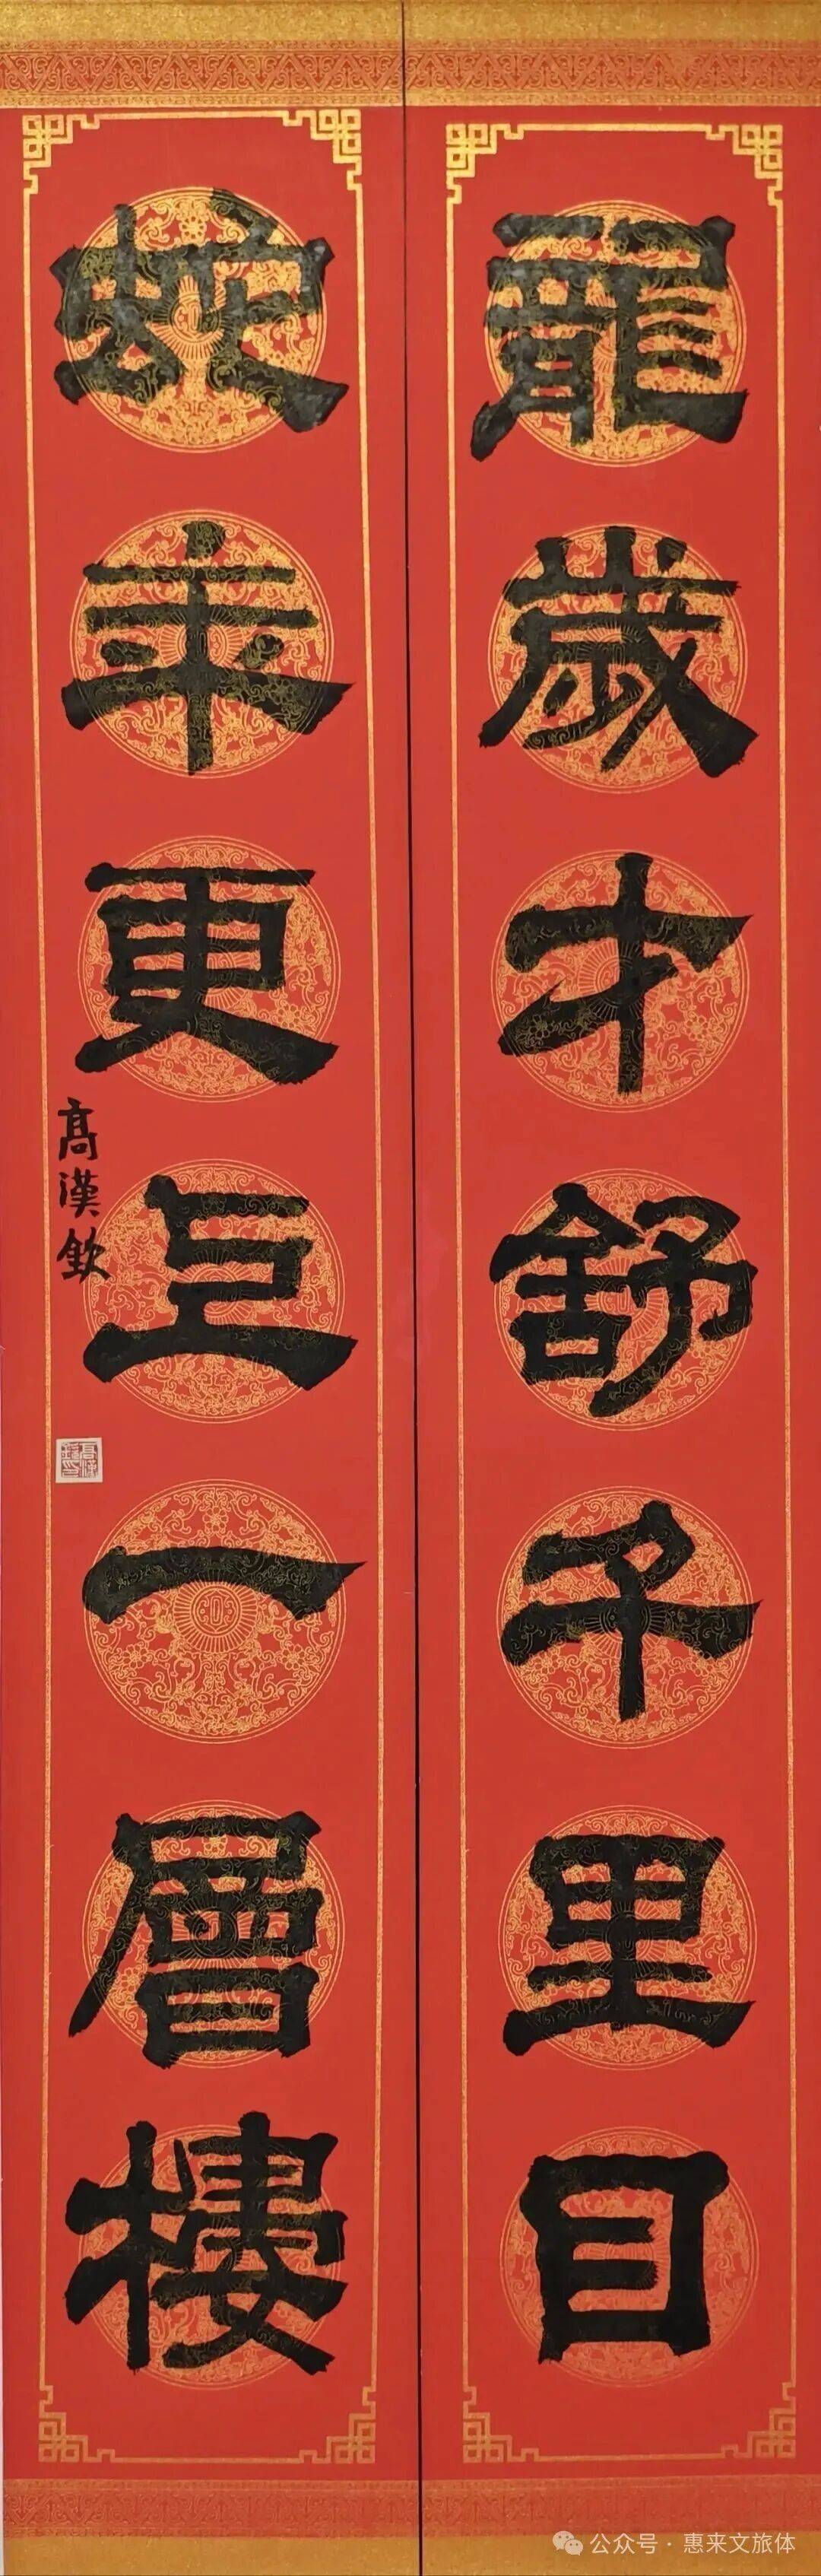 龍歲才舒千里目
蛇年更上一層樓
高漢欽
公众号 · 惠来文旅体